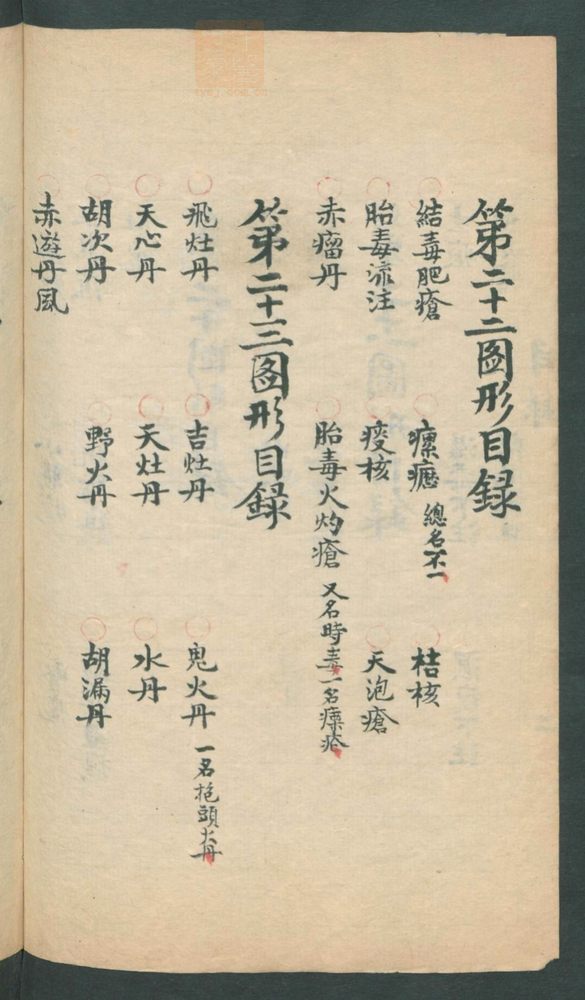 第二十二圖形目録
結毒肥瘡 瘰癧 總名不一 桔核
胎毒流注 痰核 天泡瘡
赤瘤丹 胎毒火灼瘡 又名時毒一名瘭疮
第二十三圖形目録
飛灶丹 吉灶丹 鬼火丹 一名抱頭火丹
天心丹 天灶丹 水丹
胡次丹 野火丹 胡漏丹
赤遊丹風